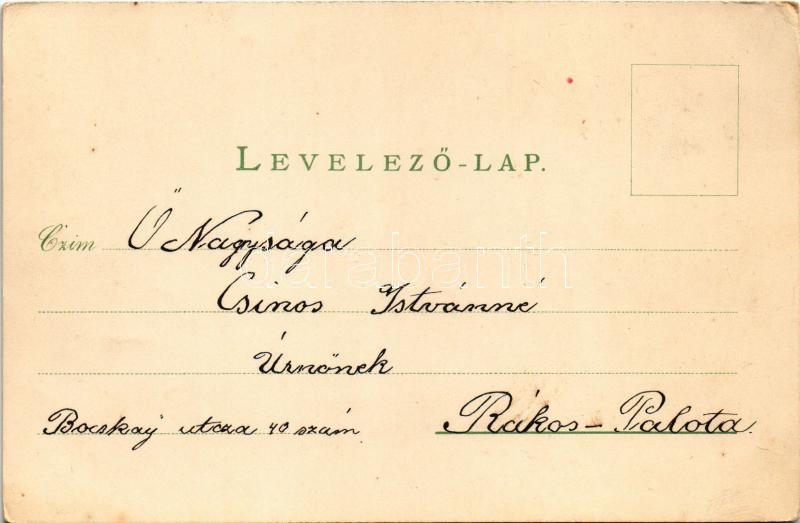 LEVELEZŐ-LAP.
Czim Ő Nagysága
darabanth
Csinos Istvánné
Úrnőnek
Bocskay utcza 40 szám Rákos-Palota.